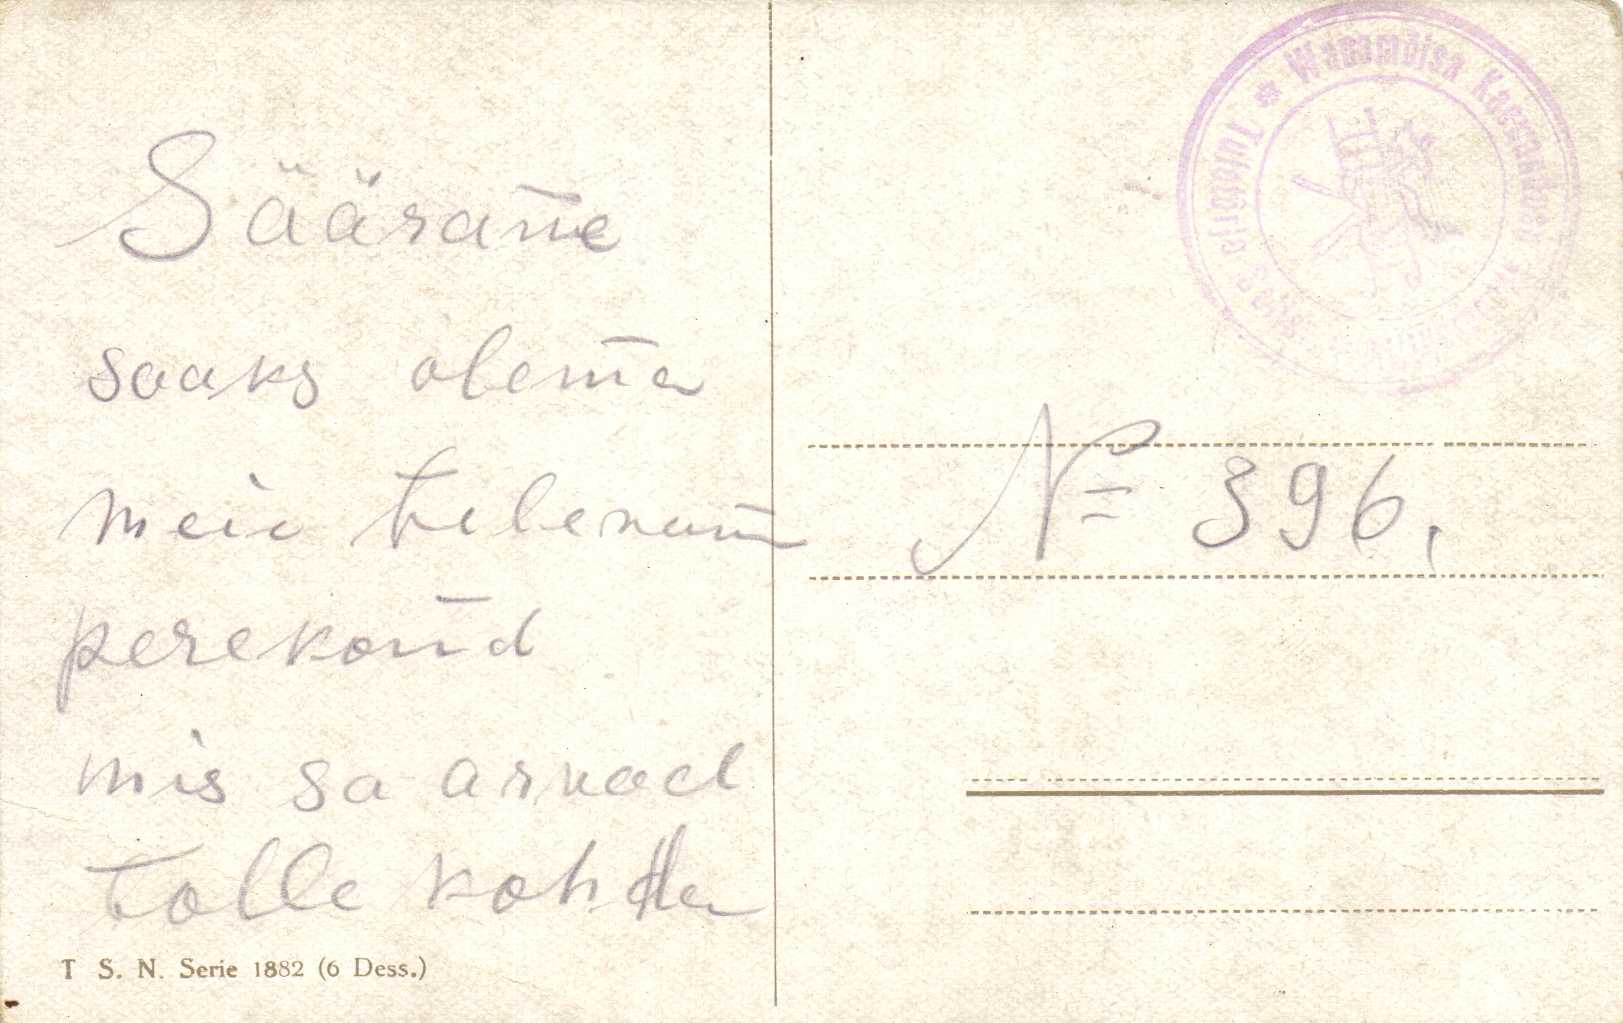 Säärane
saaks olema
meie tulevane
perekond
mis sa arvad
tolle kohta
T S. N. Serie 1882 (6 Dess.)
Wanamõisa
Tuletõrje Selts
№ 396.